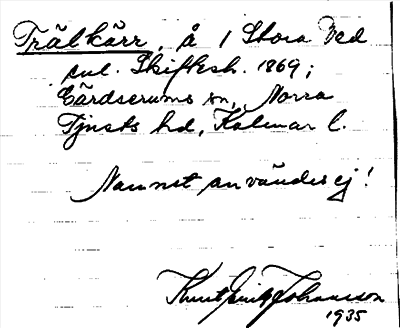 Trälkärr, å 1 Stora Ved
enl. Skiftesh. 1869;
Gärdserums sn, Norra
Tjusts hd, Kalmar l.
Namnet användes ej!
Knut Johansson
1935